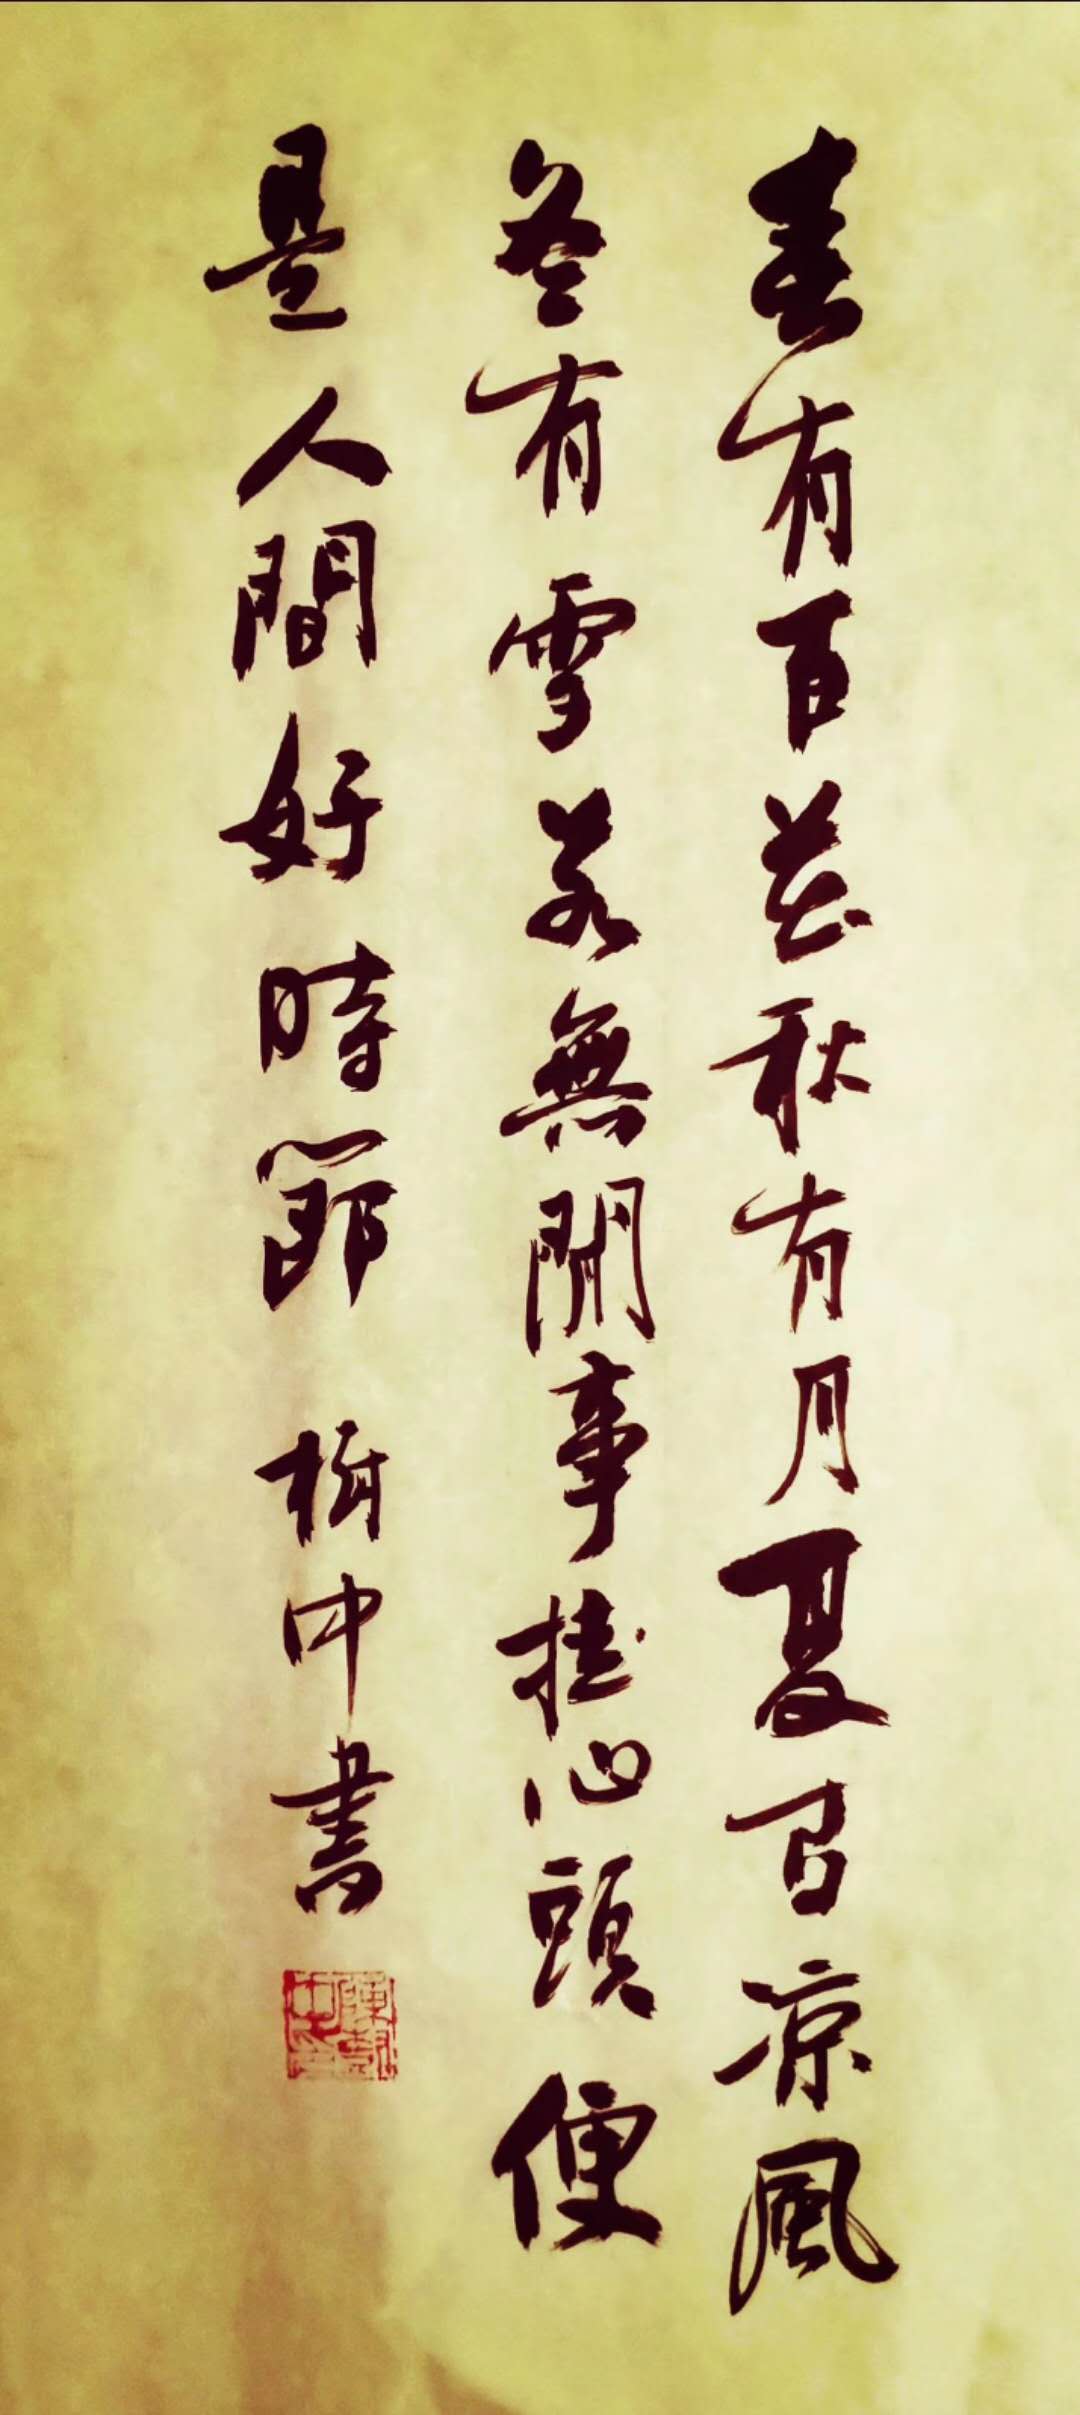 春有百花秋有月夏有凉風
冬有雪若無閒事挂心頭便
是人間好時節 樹中書